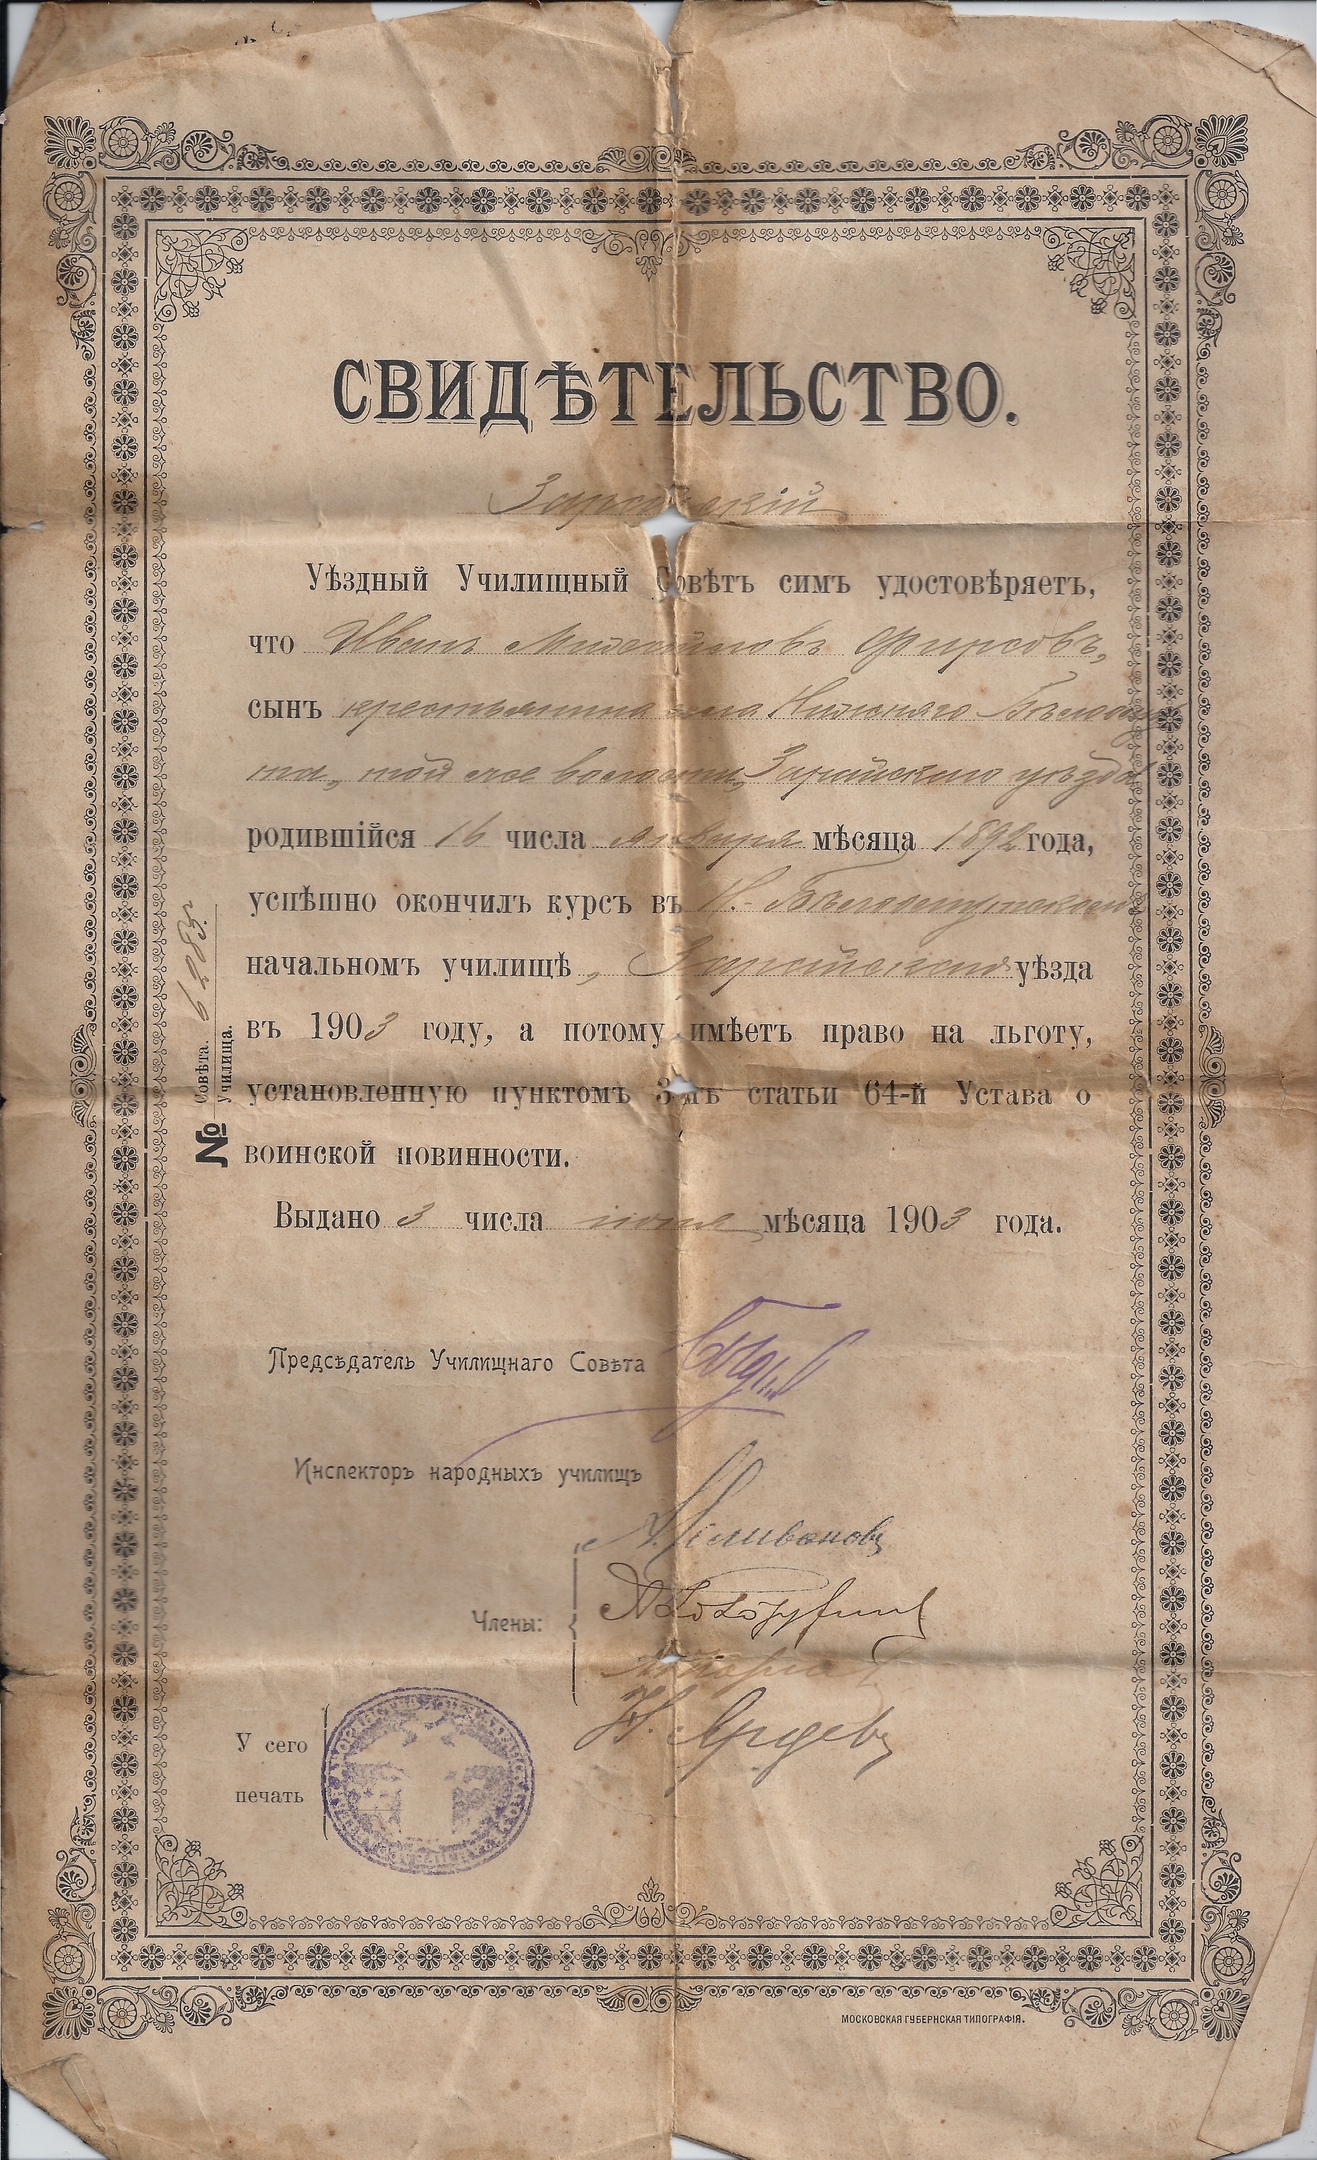 СВИДѢТЕЛЬСТВО.
Зарайскій
Уѣздный Училищный Совѣтъ симъ удостовѣряетъ,
что Иванъ Фирсовъ,
сынъ крестьянина села Нижняго Бѣлоому
та, той же волости, Зарайскаго уѣзда
родившійся 16 числа января мѣсяца 1892 года,
успѣшно окончилъ курсъ въ Н.-Бѣлоомутскомъ
начальномъ училищѣ, Зарайскаго уѣзда
въ 1903 году, а потому имѣетъ право на льготу,
установленную пунктомъ 3-мъ статьи 64-й Устава о
воинской повинности.
Выдано 3 числа мѣсяца 1903 года.
№ Совѣта. 6283.
Училища.
Предсѣдатель Училищнаго Совѣта
Инспекторъ народныхъ училищъ
А. Селивановъ
Члены:
Н. Ардевъ
У сего
печать
МОСКОВСКАЯ ГУБЕРНСКАЯ ТИПОГРАФІЯ.